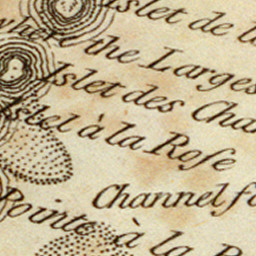 Islet de
where the Larges
Islet des Cha
Islet à la Rose
Channel fo
Pointe à la R